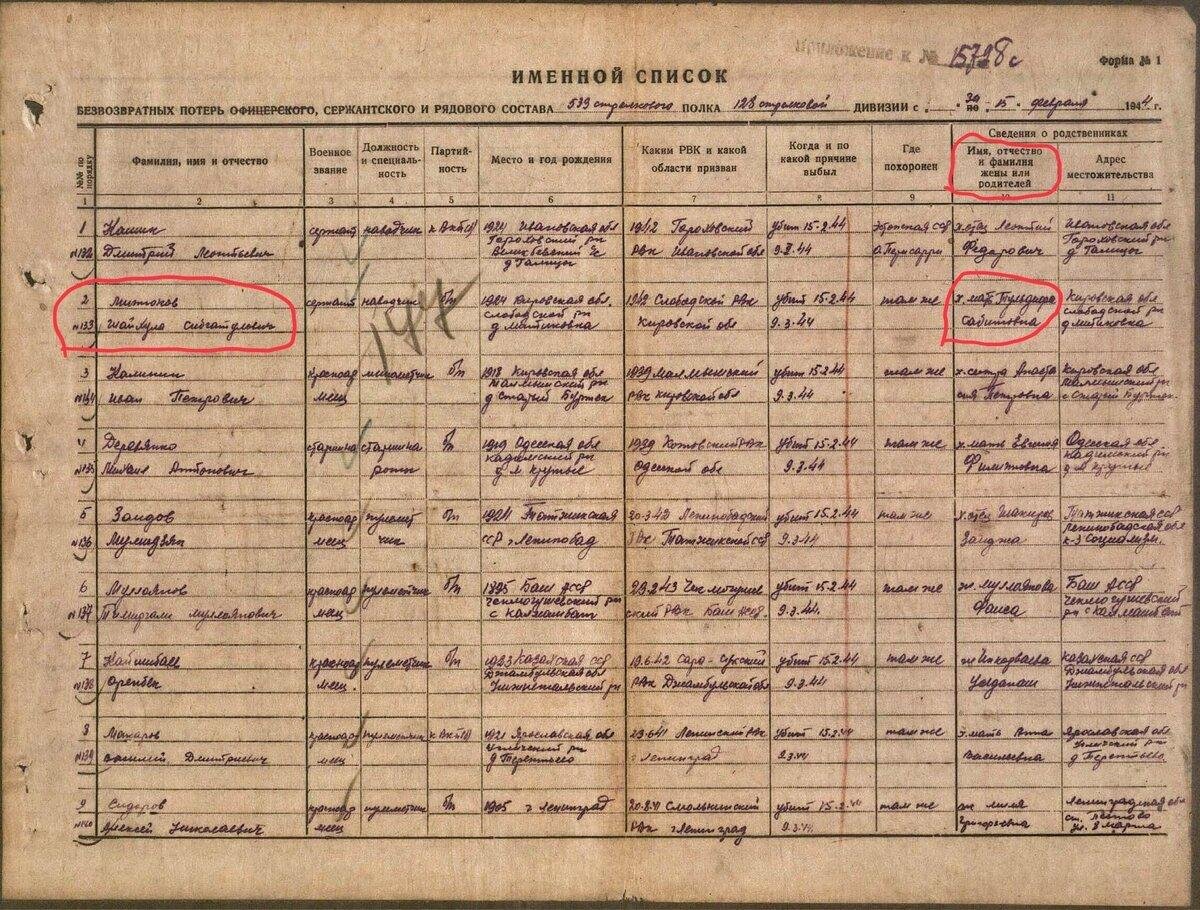 Приложение к № 15728с
Форма № 1
ИМЕННОЙ СПИСОК
БЕЗВОЗВРАТНЫХ ПОТЕРЬ ОФИЦЕРСКОГО, СЕРЖАНТСКОГО И РЯДОВОГО СОСТАВА 533 стрелкового ПОЛКА 128 стрелковой ДИВИЗИИ с за по 15. февраля 1944 г.
Сведения о родственниках
№№ по порядку Фамилия, имя и отчество Военное звание Должность и специальность Партийность Место и год рождения Каким РВК и какой области призван Когда и по какой причине выбыл Где похоронен Имя, отчество и фамилия жены или родителей Адрес местожительства
1 2 3 4 5 6 7 8 9 10 11
1 Кашин сержант наводчик к ВКП(б) 1924 Ивановская обл 1942 Гороховский убит 15.2.44 Эстонская ССР х. отец Леонтий Ивановская обл
Гороховский рн Гороховский рн
№132 Дмитрий Леонтьевич РВК Ивановской обл Федорович
д Галицы д Галицы
2 Митюков сержант наводчик б/п 1924 Кировская обл. 1942 Слободской РВК убит 15.2.44 там же х. мать Кировская обл
слободской рн слободской рн
№133 Шайхула Сибгатулович д митюковка Кировской обл 9.3.44 Сабитовна
177
3 Калинин красноар минометчик б/п 1918 Кировская обл 1939 Малмыжский убит 15.2.44 там же х. сестра Анаста Кировская обл
Малмыжский рн Малмыжский рн
№134 Иван Петрович меец д Старый Буртек РВК Кировской обл 9.3.44 сия Петровна с Старый Буртек
4 Деревянко старшина старшина б/п 1919 Одесская обл 1939 Котовский РВК убит 15.2.44 там же х. мать Евгения Одесская обл
№135 Михаил Антонович роты Одесской обл 9.3.44 Филиповна
5 Заидов красноар пулемет б/п 1924 Таджикская 20-3-42 Ленинобадский убит 15.2.44 там же х. отец Таджикская ССР
Ленинобадская обл
№136 меец чик ССР г Ленинобад РВК Таджикской ССР 9.3.44 к-з Социализм.
6 Муллаянов красноар пулеметчик б/п 1895 Баш АССР 29.2.43 Чекмогушев убит 15.2.44 там же ж. муллаянова Баш АССР
Чекмогушевский рн Чекмогушевский
№137 муллаянович меец с Калмашбаш ский РВК Баш АССР 9.3.44. Фаиса рн с Калмашбаш
7 Найшибаев красноар пулеметчик б/п 1923 Казахская ССР 19.6.42 Сары-Суский убит 15.2.44 там же Казахская ССР
Джамбульская обл Джамбульской
№138 меец. РВК Джамбульской обл 9.3.44
8 Макаров красноар пулеметчик к ВКП(б) 1921 Ярославская обл 23-6-41 Ленинский РВК убит 15.2.44 там же х. мать Анна Ярославская обл
Угличский рн Угличский рн
№139 Василий Дмитриевич меец д Терентьево г Ленинград 9.3.44 Васильевна д Терентьева
9 Сидоров красноар пулеметчик б/п 1905 г Ленинград 20-8-41 Смольнинский убит 15.2.44 там же Ленинградская обл
№140 Алексей Николаевич меец РВК г Ленинград 9.3.44 Григорьевна ул. 8 марта